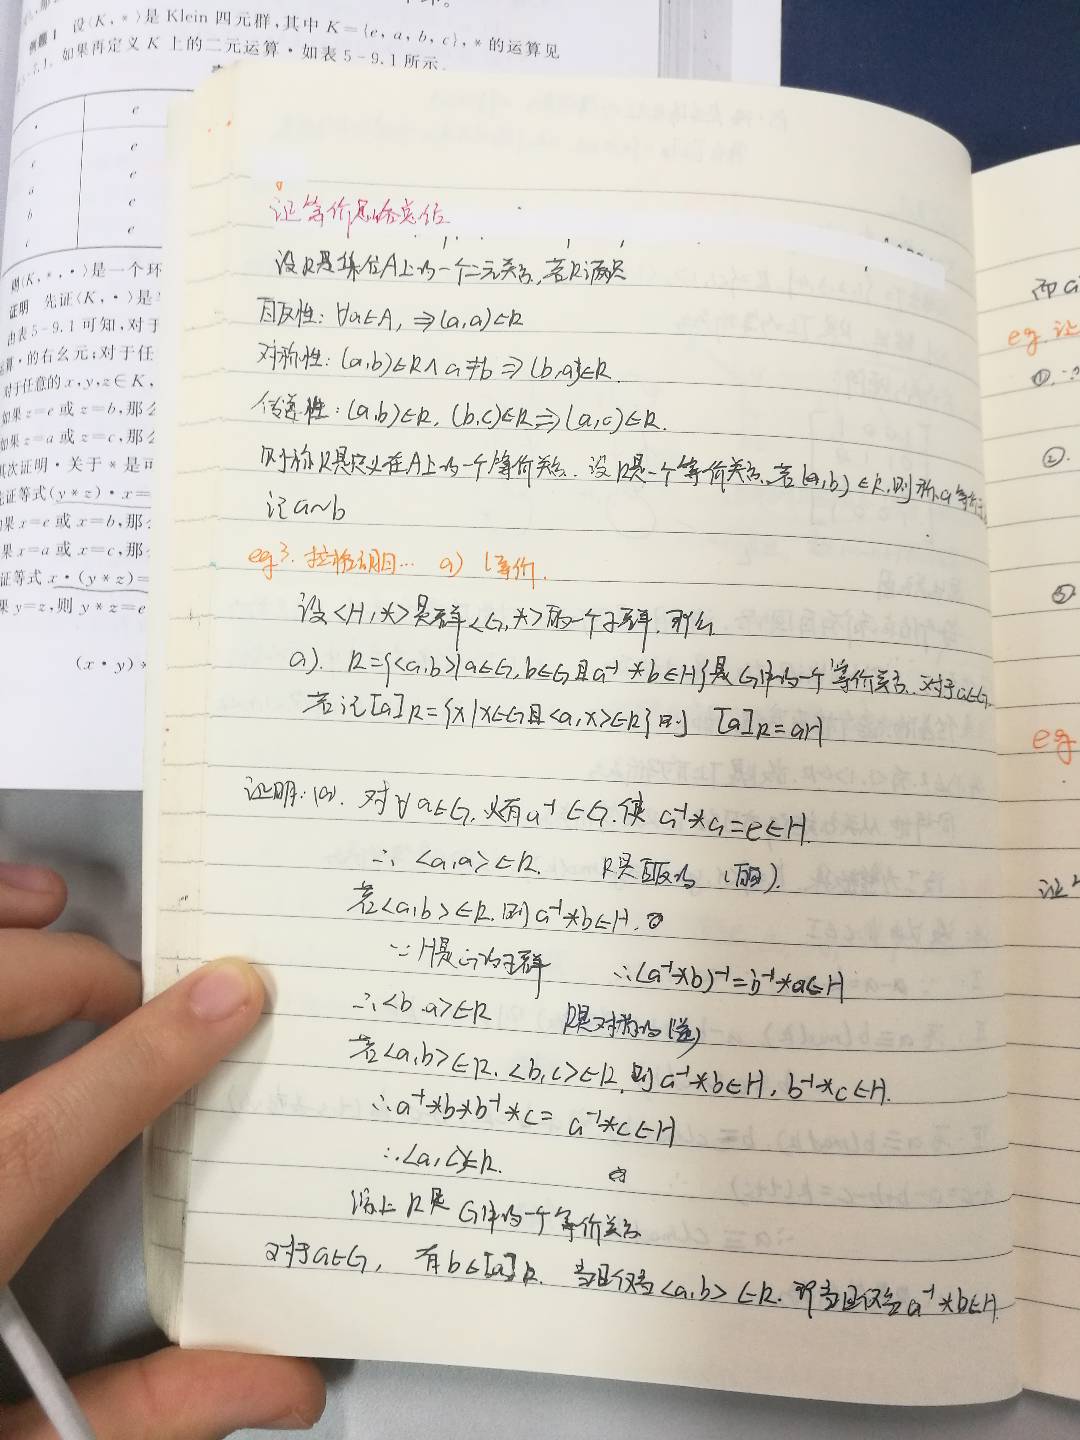 例题1 设⟨K,*⟩是Klein四元群,其中K={e,a,b,c},*的运算见
如果再定义K上的二元运算·如表5-9.1所示.
· e
e e
a e
b e
c e
则⟨K,*,·⟩是一个环
证明 先证⟨K,·⟩是
由表5-9.1可知,对于
运算·的右幺元;对于任
对于任意的x,y,z∈K,
如果z=e或z=b,那么
如果z=a或z=c,那么
其次证明·关于*是可
先证等式(y*z)·x=
如果x=e或x=b,那
如果x=a或x=c,那
证等式x·(y*z)=
果y=z,则y*z=e
(x·y)*
证等价思路总结
设R是集合A上的一个二元关系,若R满足
自反性: ∀a∈A, ⇒(a,a)∈R
对称性: (a,b)∈R∧a≠b⇒(b,a)∈R.
传递性: (a,b)∈R, (b,c)∈R⇒(a,c)∈R.
则称R是定义在A上的一个等价关系. 设R是一个等价关系,若(a,b)∈R,则称a等价于
记a~b
eg3. 拉格朗日… a) (等价.
设<H,*>是群<G,*>的一个子群.那么
a). R={<a,b>|a∈G,b∈G且a⁻¹*b∈H}是G中的一个等价关系.对于a∈G.
若记[a]R={x|x∈G且<a,x>∈R}则 [a]R=aH
证明:(a). 对∀a∈G.必有a⁻¹∈G.使 a⁻¹*a=e∈H.
∴<a,a>∈R. R是自反的
若<a,b>∈R.则a⁻¹*b∈H.
∵H是G的子群 ∴(a⁻¹*b)⁻¹=b⁻¹*a∈H
∴<b,a>∈R R是对称的
若<a,b>∈R.<b,c>∈R,则a⁻¹*b∈H,b⁻¹*c∈H.
∴a⁻¹*b*b⁻¹*c=a⁻¹*c∈H
∴<a,c>∈R.
综上 R是G中的一个等价关系
对于a∈G, 有b∈[a]R. 当且仅当<a,b>∈R.即当且仅当a⁻¹*b∈H.
而a
eg.证
①.∵
②.
③.
eg
证